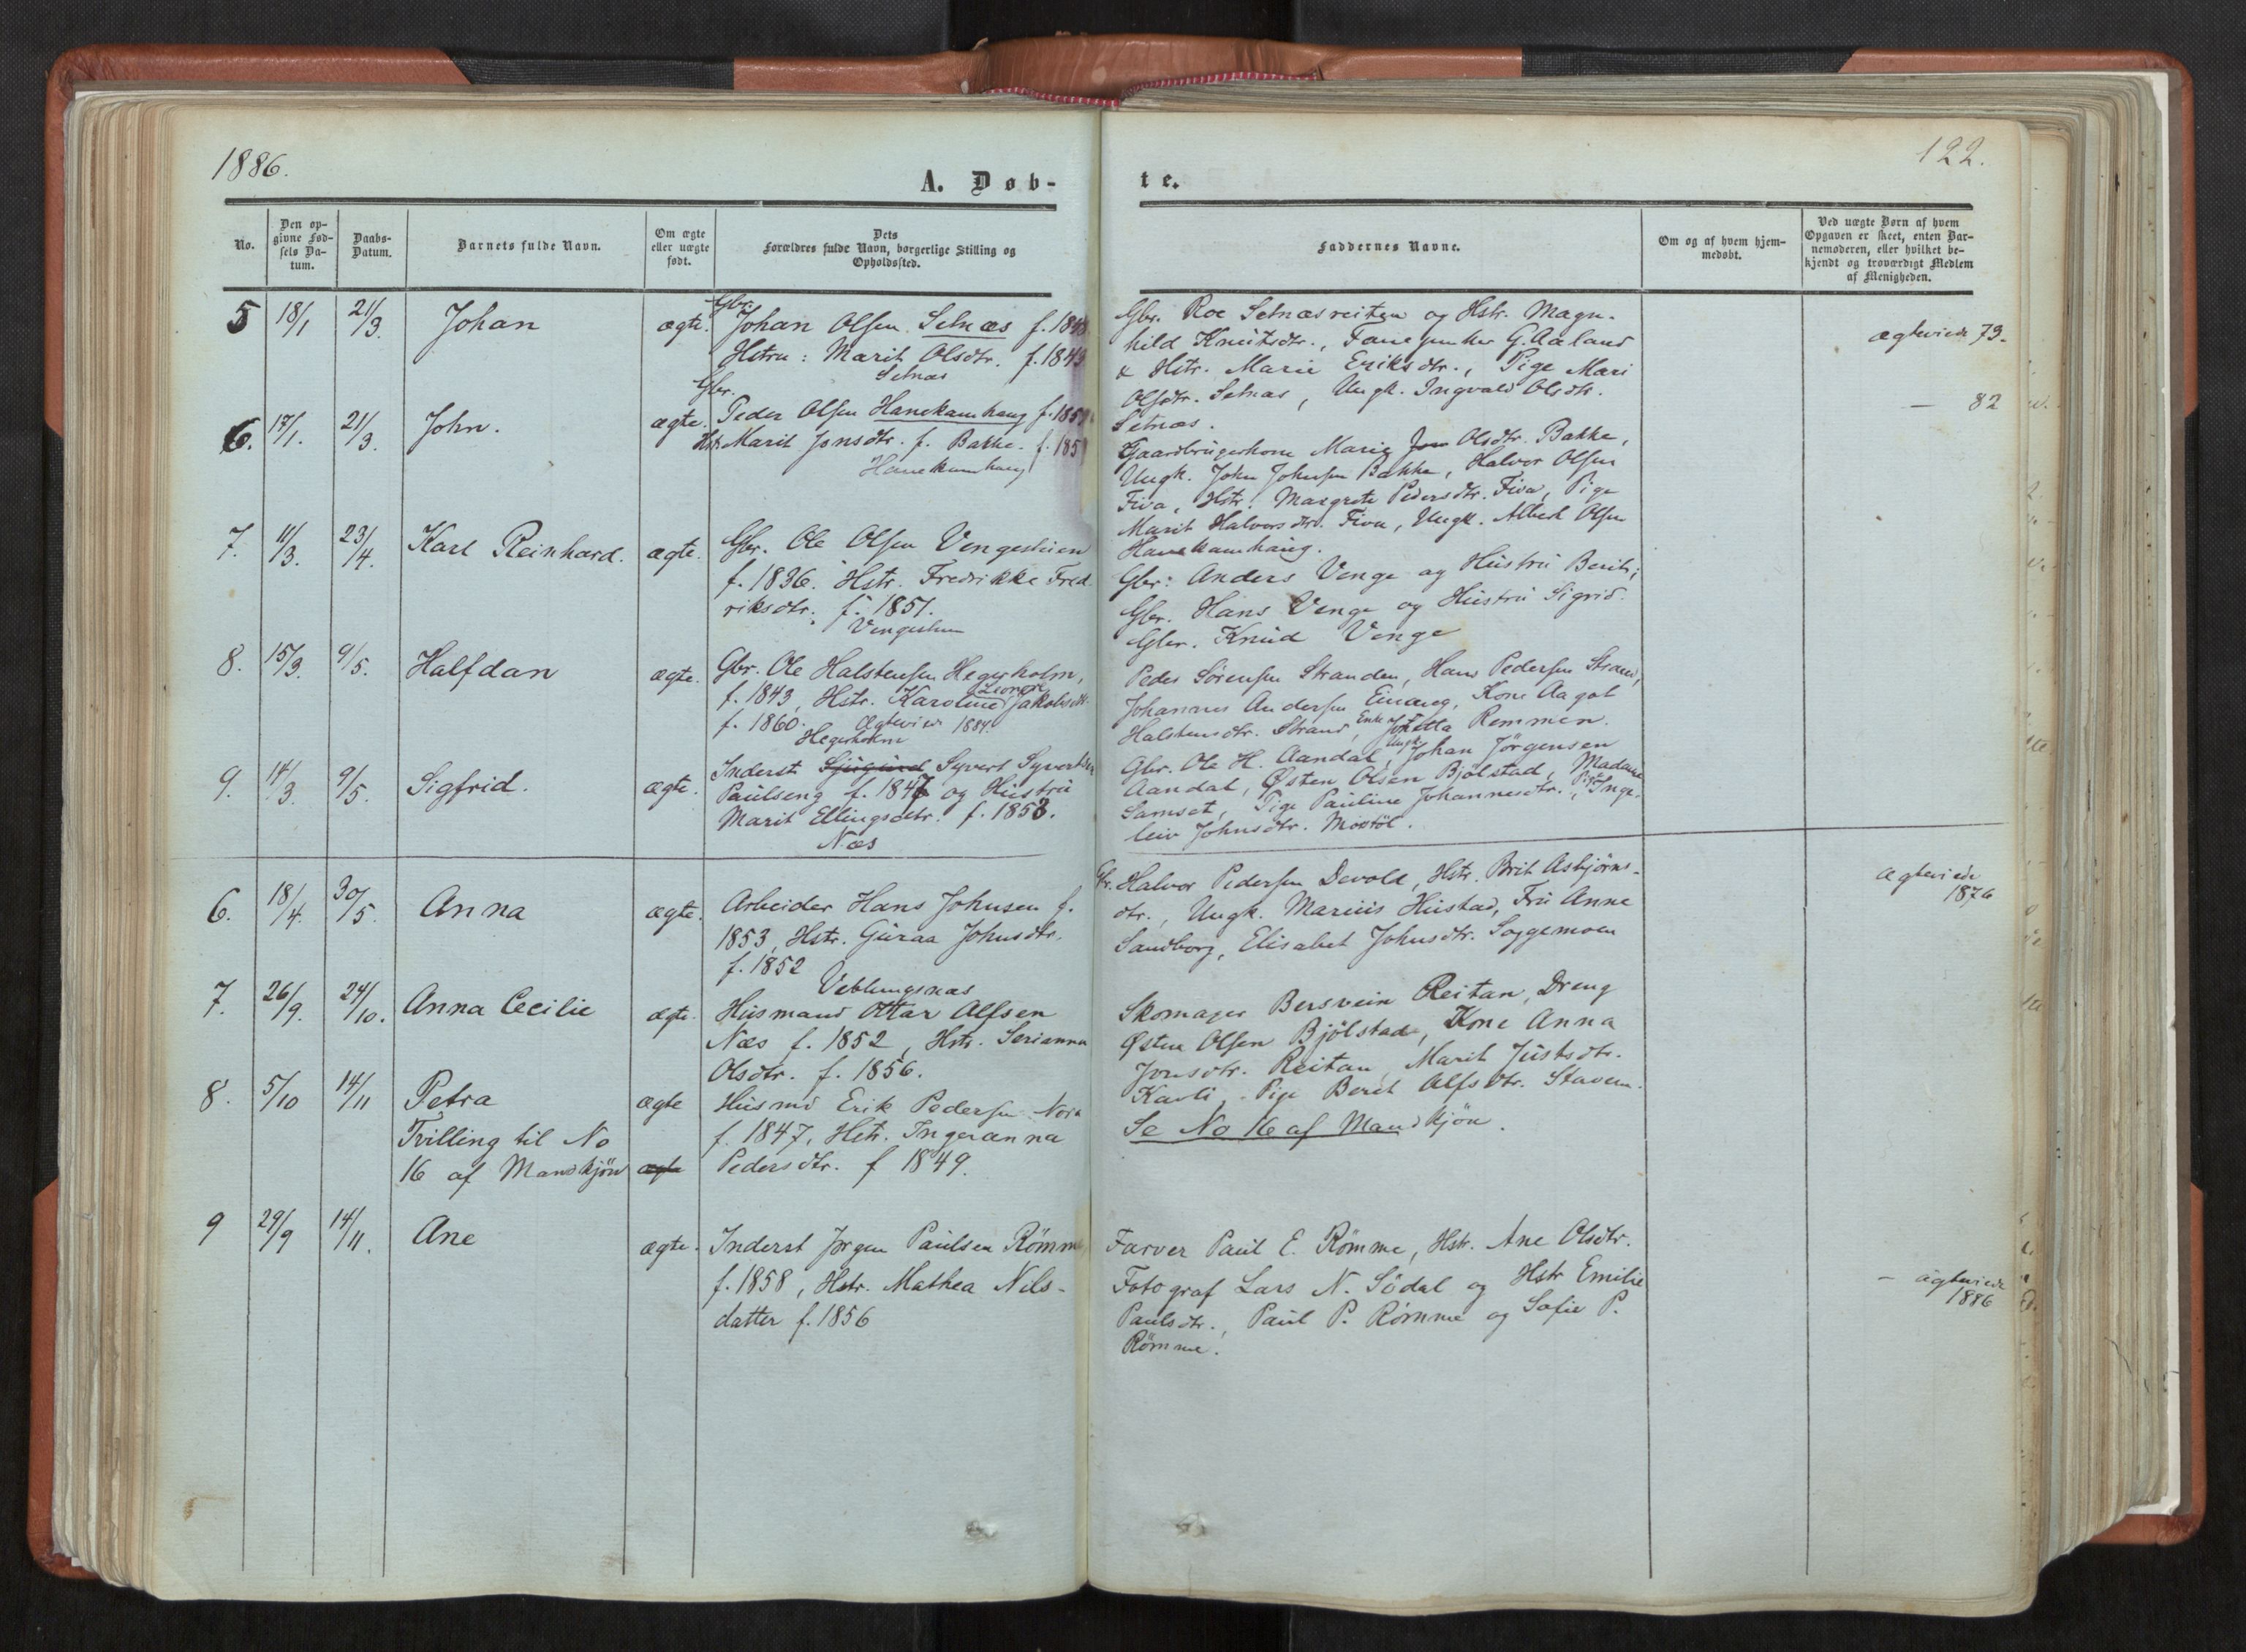 1886.
122.
A. Døb-
te.
No.
Den op-
givne Fød-
sels Da-
tum.
Daabs-
Datum.
Barnets fulde Navn.
Om ægte
eller uægte
født.
Dets
Forældres fulde Navn, borgerlige Stilling og
Opholdssted.
Faddernes Navne.
Om og af hvem hjem-
medøbt.
Ved uægte Børn af hvem
Opgaven er skeet, enten Bar-
nemoderen, eller hvilket be-
kjendt og troværdigt Medlem
af Menigheden.
5 18/1 21/3. Johan ægte.
Gbr.
Johan Olsen Setnæs f. 1848
Hstru: Marit Olsdtr. f. 1843
Setnæs
Gbr. Roe Setnæsreiten og Hstr. Magn-
hild Knutsdtr., Fanejunker G. Aaland
& Hstr. Marie Eriksdtr., Pige Mari
Olsdtr. Setnæs, Ungk. Ingvald Olsdtr.
Setnæs.
ægteviede 73.
6. 17/1. 21/3. John. ægte.
Gbr.
Peder Olsen Hanekamhaug f. 185
Hstr. Marit Jonsdtr. f. Bakke. f. 185
Hanekamhaug
Gaardbrugerkone Marie Jon Olsdtr. Bakke,
Ungk. John Johnsen Bakke, Halvor Olsen
Fiva, Hstr. Margrete Pedersdtr. Fiva, Pige
Marit Halvorsdtr. Fiva, Ungk. Albert Olsen
Hanekamhaug.
— 82
7. 11/3. 23/4. Karl Reinhard. ægte.
Gbr. Ole Olsen Vengestuen
f. 1836. Hstr. Fredrikke Fred-
riksdtr. f. 1851.
Vengestuen
Gbr: Anders Venge og Hustru Berit;
Gbr. Hans Venge og Hustru Sigrid.
Gbr. Knud Venge
8. 15/3. 9/5. Halfdan ægte.
Gbr. Ole Halstensen Hegerholm,
f. 1843, Hstr. Karoline Leonore Jakobsdtr.
f. 1860. Ægteviede 1884.
Hegerholm
Peder Sørensen Stranden, Hans Pedersen Strand,
Johannes Andersen Einang, Kone Aagot
Halstensdtr. Strand, Enke Jonetta Remmen.
9. 14/3. 9/5. Sigfrid. ægte.
Inderst Sjugurd Syvert Syvertsen
Paulseng f. 1847 og Hustru
Marit Ellingsdtr. f. 1853.
Næs
Gbr. Ole H. Aandal, Ungk. Johan Jörgensen
Aandal, Østen Olsen Bjölstad, Madame
Samset, Pige Pauline Johannesdtr., Pige Inge-
leiv Johnsdtr. Movtöl.
6. 18/4. 30/5. Anna ægte.
Arbeider Hans Johnsen f.
1853, Hstr. Guraa Johnsdtr.
f. 1852
Veblungsnæs
Gbr. Halvor Pedersen Devold, Hstr. Brit Asbjörns-
dtr., Ungk. Marius Hustad, Fru Anne
Sandborg, Elisabet Johnsdtr. Soggemoen
ægteviede
1876
7. 26/9. 24/10. Anna Cecilie ægte.
Husmand Ottar Alfsen
Næs f. 1852, Hstr. Serianna
Olsdtr. f. 1856.
Skomager Bersvein Reitan, Dreng
Østen Olsen Bjölstad, Kone Anna
Jonsdtr. Reitan, Marit Justsdtr.
Kavli, Pige Beret Alfsdtr. Stavem.
8. 5/10 14/11 Petra ægte
Tvilling til No
16 af Mandkjön ægte
Husmd Erik Pedersen Nora
f. 1847, Hstr. Ingeranna
Pedersdtr. f 1849.
Se No 16 af Mandkjön.
9 29/9 14/11. Ane ægte.
Inderst Jørgen Paulsen Römme
f. 1858, Hstr. Mathea Nils-
datter f. 1856
Farver Paul E. Römme, Hstr. Ane Olsdtr.
Fotograf Lars N. Södal og Hstr Emilie
Paulsdtr., Paul P. Römme og Sofie P.
Römme.
- ægteviede
1886